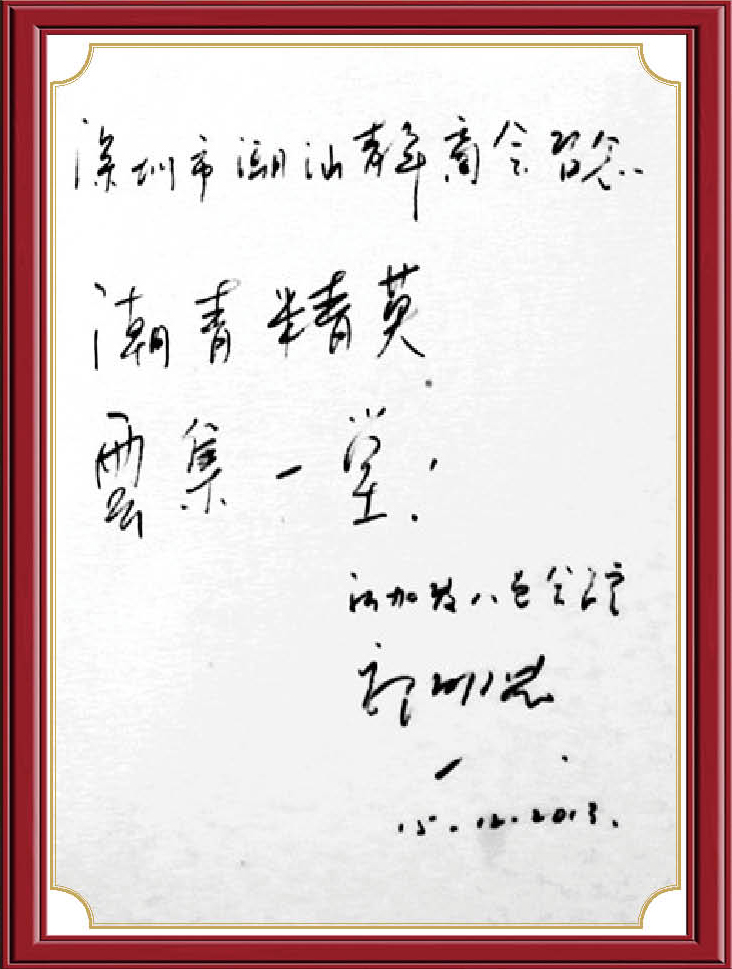 深圳市潮汕青年商会留念
潮青精英
雲集一堂！
新加坡八邑会馆
郭明忠
15.12.2013.